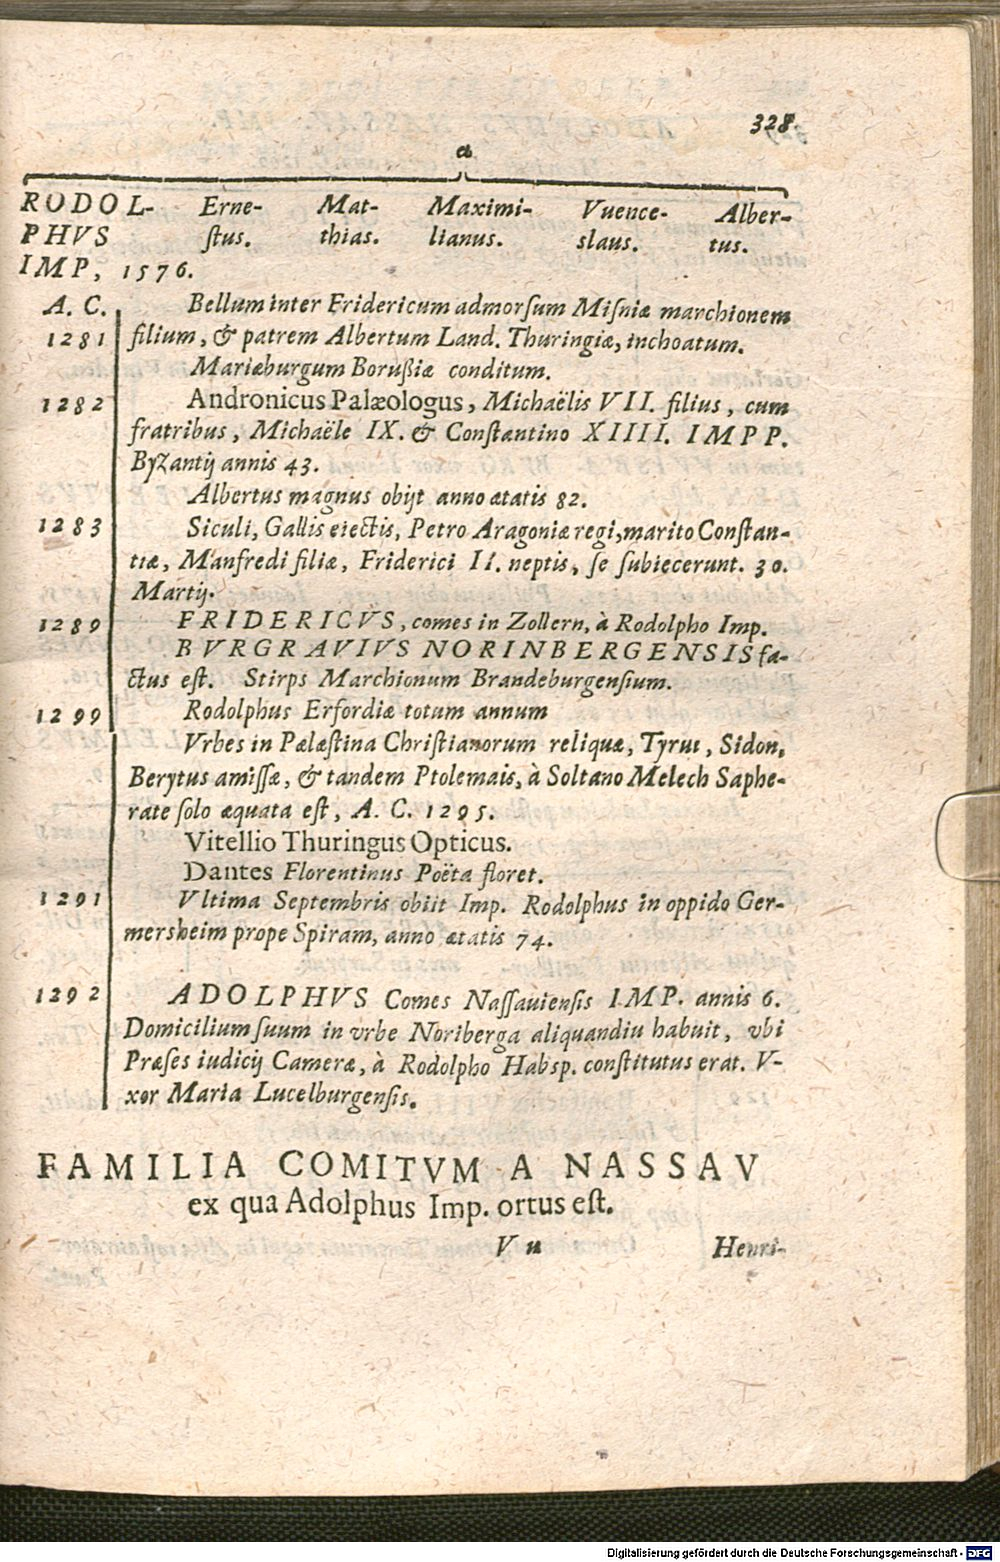 328
a
RODOL- Erne- Mat- Maximi- Vuence- Alber-
PHVS stus. thias. lianus. slaus. tus.
IMP, 1576.
A. C. Bellum inter Fridericum admorsum Misniæ marchionem
1281 filium, & patrem Albertum Land. Thuringiæ, inchoatum.
Mariæburgum Borußiæ conditum.
1282 Andronicus Palæologus, Michaëlis VII. filius, cum
fratribus, Michaële IX. & Constantino XIIII. IMPP.
Byzantij annis 43.
Albertus magnus obijt anno ætatis 82.
1283 Siculi, Gallis eiectis, Petro Aragoniæ regi, marito Constan-
tiæ, Manfredi filiæ, Friderici II. neptis, se subiecerunt. 30.
Martij.
1289 FRIDERICVS, comes in Zollern, à Rodolpho Imp.
BVRGRAVIVS NORINBERGENSIS fa-
ctus est. Stirps Marchionum Brandeburgensium.
1299 Rodolphus Erfordiæ totum annum
Vrbes in Palæstina Christianorum reliquæ, Tyrus, Sidon,
Berytus amissæ, & tandem Ptolemais, à Soltano Melech Saphe-
rate solo æquata est, A. C. 1295.
Vitellio Thuringus Opticus.
Dantes Florentinus Poëta floret.
1291 Vltima Septembris obiit Imp. Rodolphus in oppido Ger-
mersheim prope Spiram, anno ætatis 74.
1292 ADOLPHVS Comes Nassauiensis IMP. annis 6.
Domicilium suum in vrbe Noriberga aliquandiu habuit, vbi
Præses iudicij Cameræ, à Rodolpho Habsp. constitutus erat. V-
xor Maria Lucelburgensis.
FAMILIA COMITVM A NASSAV
ex qua Adolphus Imp. ortus est.
V u Henri-
Digitalisierung gefördert durch die Deutsche Forschungsgemeinschaft - DFG